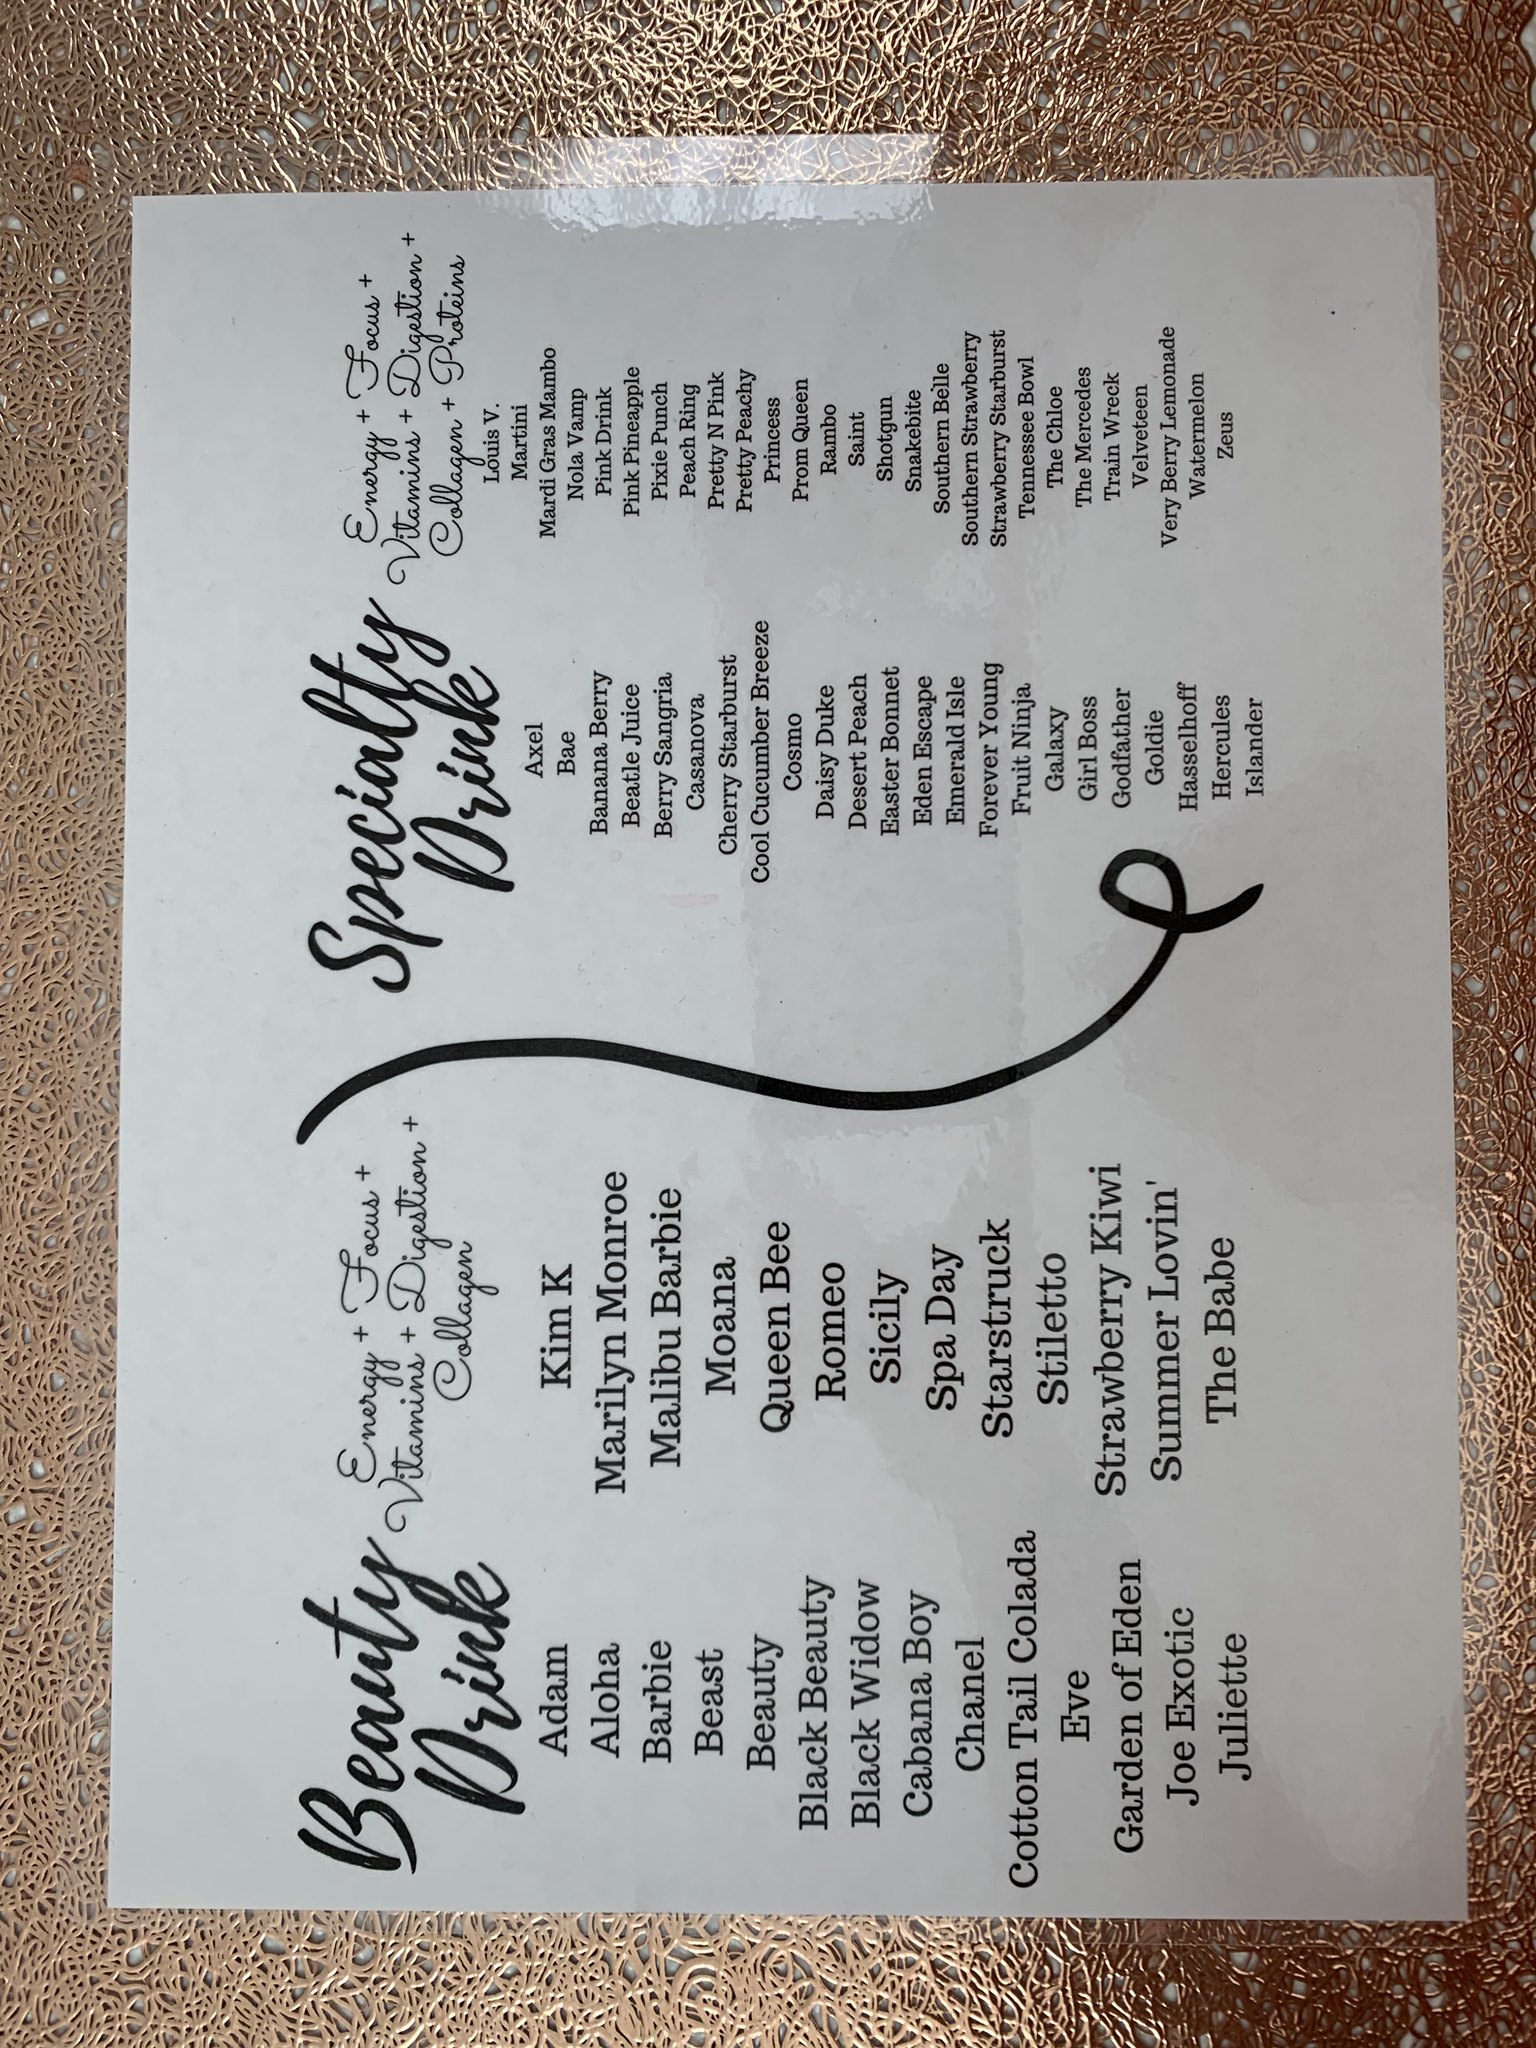 Beauty
Drink
Energy + Focus +
Vitamins + Digestion +
Collagen
Adam
Aloha
Barbie
Beast
Beauty
Black Beauty
Black Widow
Cabana Boy
Chanel
Cotton Tail Colada
Eve
Garden of Eden
Joe Exotic
Juliette
Kim K
Marilyn Monroe
Malibu Barbie
Moana
Queen Bee
Romeo
Sicily
Spa Day
Starstruck
Stiletto
Strawberry Kiwi
Summer Lovin'
The Babe
Specialty
Drink
Energy + Focus +
Vitamins + Digestion +
Collagen + Proteins
Axel
Bae
Banana Berry
Beatle Juice
Berry Sangria
Casanova
Cherry Starburst
Cool Cucumber Breeze
Cosmo
Daisy Duke
Desert Peach
Easter Bonnet
Eden Escape
Emerald Isle
Forever Young
Fruit Ninja
Galaxy
Girl Boss
Godfather
Goldie
Hasselhoff
Hercules
Islander
Louis V.
Martini
Mardi Gras Mambo
Nola Vamp
Pink Drink
Pink Pineapple
Pixie Punch
Peach Ring
Pretty N Pink
Pretty Peachy
Princess
Prom Queen
Rambo
Saint
Shotgun
Snakebite
Southern Belle
Southern Strawberry
Strawberry Starburst
Tennessee Bowl
The Chloe
The Mercedes
Train Wreck
Velveteen
Very Berry Lemonade
Watermelon
Zeus